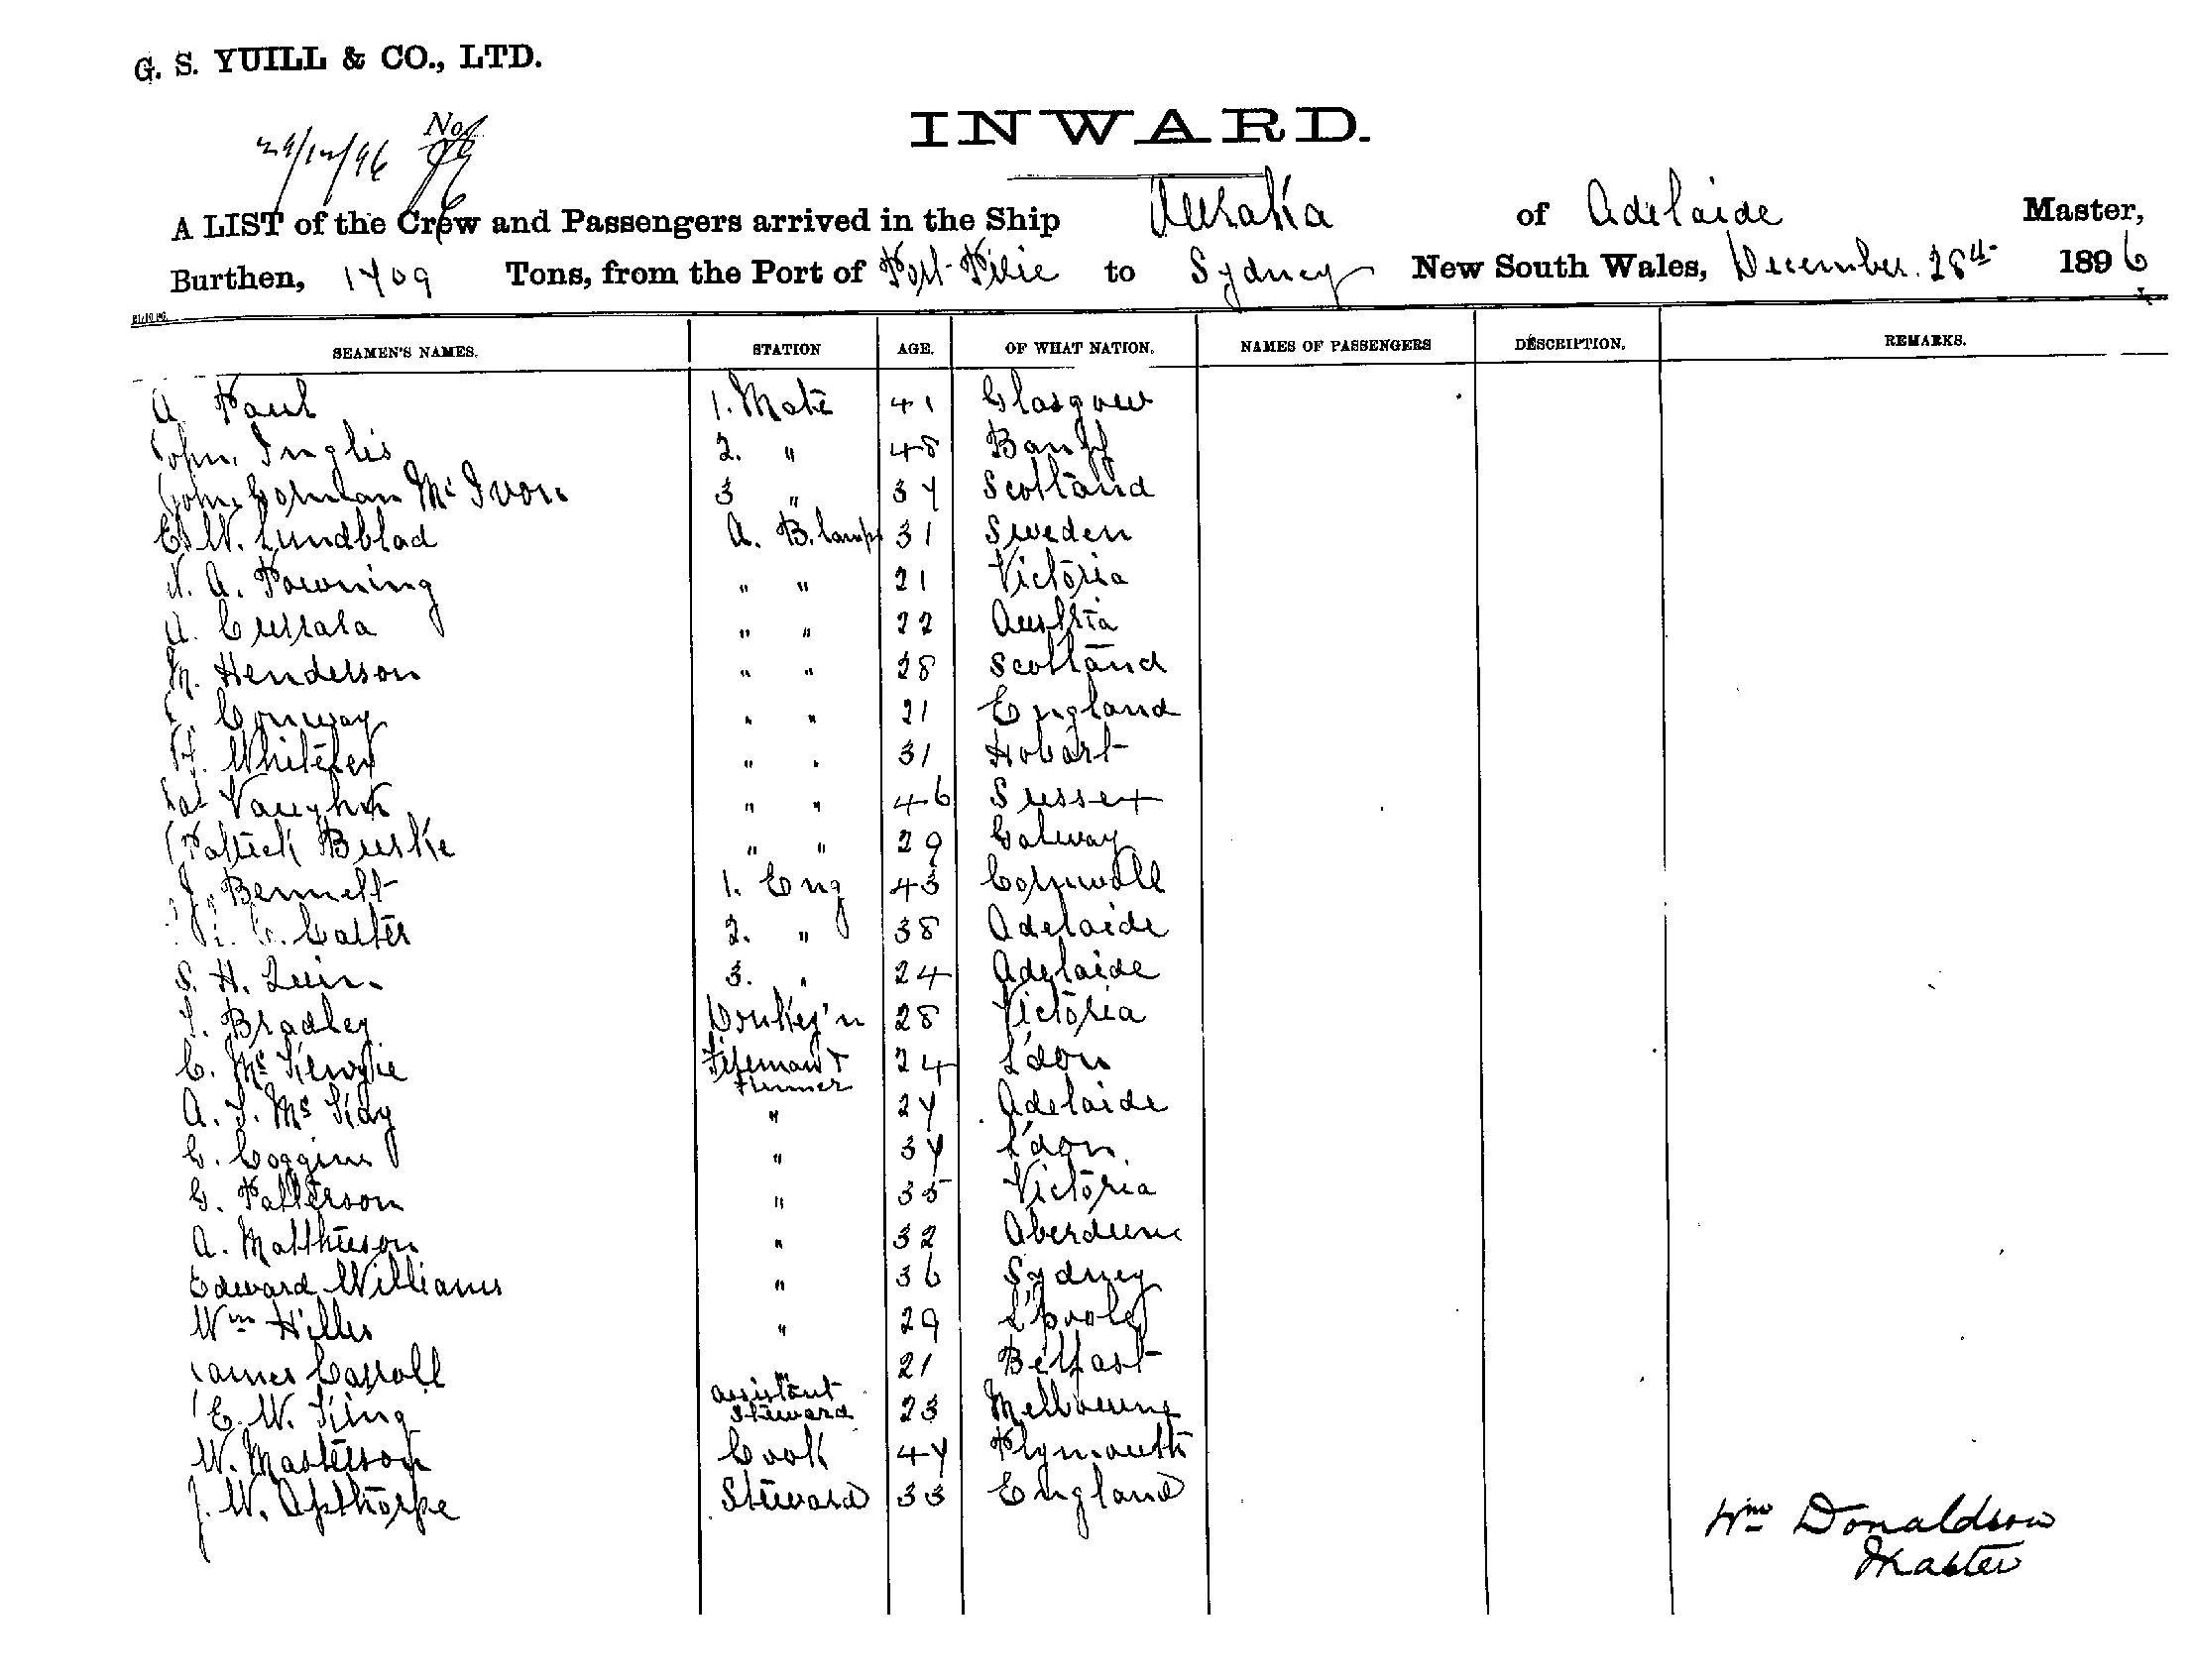 G. S. YUILL & CO., LTD.
29/12/96 No
INWARD.
A LIST of the Crew and Passengers arrived in the Ship Auraka of Adelaide Master,
Burthen, 1709 Tons, from the Port of Port Pirie to Sydney New South Wales, December. 28th 1896
SEAMEN'S NAMES. STATION AGE. OF WHAT NATION. NAMES OF PASSENGERS DESCRIPTION. REMARKS.
A. Paul 1. Mate 41 Glasgow
John Inglis 2. " 48 Banff
John Gorman McIvor 3 " 37 Scotland
W. Lundblad A. B. lamps 31 Sweden
A. Powning " " 21 Victoria
A. " " 22 Austria
M. Henderson " " 28 Scotland
Conway " " 21 England
H. Whiteley " " 31 Hobart
Vaughn " " 46 Sussex
Patrick Burke " " 29 Galway
J. Bennett 1. Eng 43 Cornwall
Carter 2. " 38 Adelaide
S. H. 3. " 24 Adelaide
T. Bradley Donkey'n 28 Victoria
C. Mc Fireman & 24 L'don
Trimmer
A. J. McKay " 27 Adelaide
C. Coggins " 37 L'don
G. Patterson " 35 Victoria
A. Matthieson " 32 Aberdeen
Edward Williams " 36 Sydney
Wm Hilles " 29 L'pool
James Carroll " 21 Belfast
E. W. King assistant steward 23 Melbourne
W. Masterson Cook 47 Plymouth
J. W. Apthorpe Steward 33 England
Wm Donaldson
Master